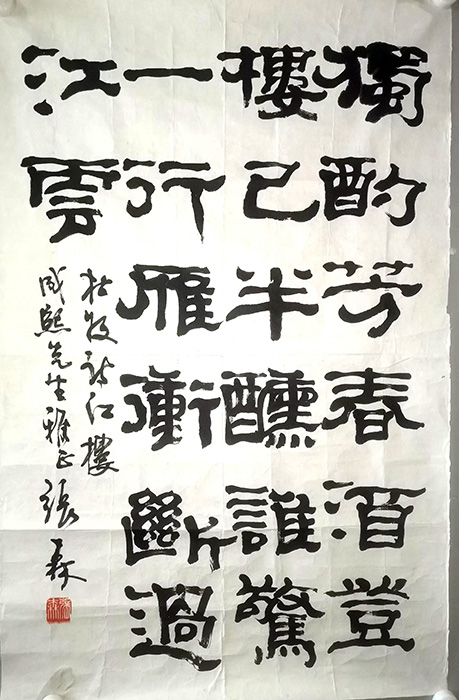 獨酌芳春酒登
樓已半醺誰驚
一行雁衝斷過
江雲
杜牧詩江樓
熙先生雅正 張森